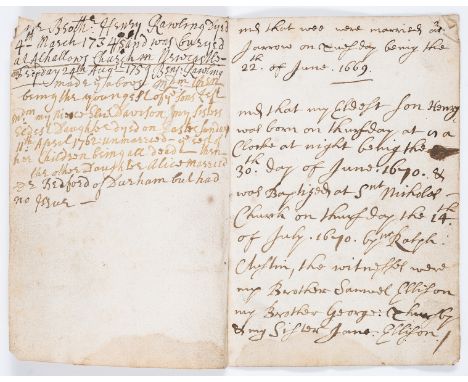 my Brothr Henry Rawling Dyed
4th March 1734 and was buryed
at Alhallows Church in Newcastle
Fryday 24th Augt 175 Benj Rawling
made
being the youngest of ye sons left
my Neece Davison, my Sisters
Daughter dyed on Easter Sunday
11th April 1762 unmarried
her Children being all dead
the other Daughter Alice married
Mr Bedford of Durham but had
no Issue
md that wee were married at
Jarrow on Tuesday being the
22th of June. 1669.
md that my Eldest son Henry
was born on thursday at
Clocke at night being the
30th day of June. 1670. &
was Baptized at Snt Nicholas
Church on thursday the 14th
of July. 1670. by mr Ralph:
Austin, the witnesses were
my Brother Samuel Ellison
my Brother George:
& my Sister Jane: Ellison